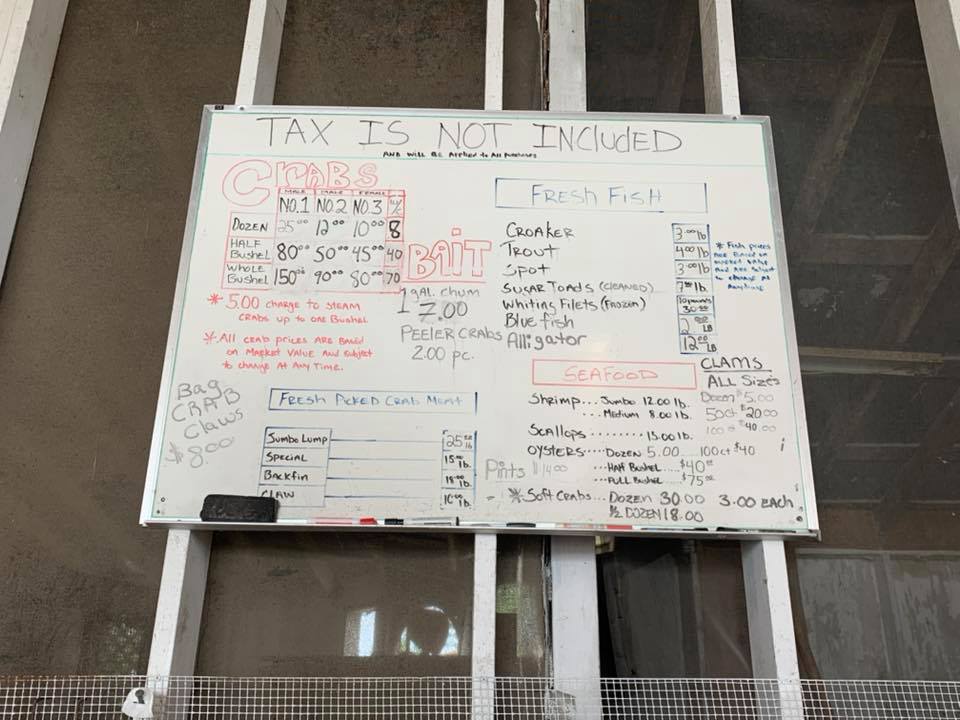 TAX IS NOT INCLUDED
AND WILL BE APPlied to All purchases
CRABS
MALE MALE FEMALE
NO.1 NO.2 NO.3
DOZEN 25⁰⁰ 12⁰⁰ 10⁰⁰ 8
HALF Bushel 80⁰⁰ 50⁰⁰ 45⁰⁰ 40
WHOLE Bushel 150⁰⁰ 90⁰⁰ 80⁰⁰ 70
* 5.00 CHARGE TO STEAM
CRABS UP TO ONE BUSHEL
* All CRAB PRICES ARE BASED
ON MARKET VALUE AND SUBJECT
TO CHANGE AT ANY TIME.
BAiT
1 gAL. CHUM
7.00
PEELER CRABS
2.00 pc.
Bag
CRAB
Claws
$8.00
FRESH PICKED CRAB MEAT
Jumbo Lump 25⁰⁰ lb
SPECIAL 15⁰⁰ lb.
BACKfiN lb.
CLAW 10⁰⁰ lb.
FRESH FISH
CROAKER 3.00 lb
TROUT 4.00 lb
SPOT 3.00 lb
SUGAR TOADS (CLEANED) lb
WHiTiNG FilETS (FROZEN) 10 pounds 30.00
Bluefish 2⁰⁰ LB
Alligator 12⁰⁰ LB
* Fish prices
ARE BASED ON
MARKET VAlUE
AND ARE SUBJECT
to change AT
Anytime
SEAFOOD
SHRimp... Jumbo 12.00 lb.
... Medium 8.00 lb.
SCAllOPS ........ 15.00 lb.
OYSTERS .... DOZEN 5.00 .... 100ct $40
Pints 14.00 ... HALF Bushel .... $40⁰⁰
... FULL Bushel .... $75⁰⁰
* Soft CRABS... DOZEN 30.00 3.00 EACH
½ DOZEN 18.00
CLAMS
ALL Sizes
Dozen $5.00
50ct $20.00
100 ct $40.00